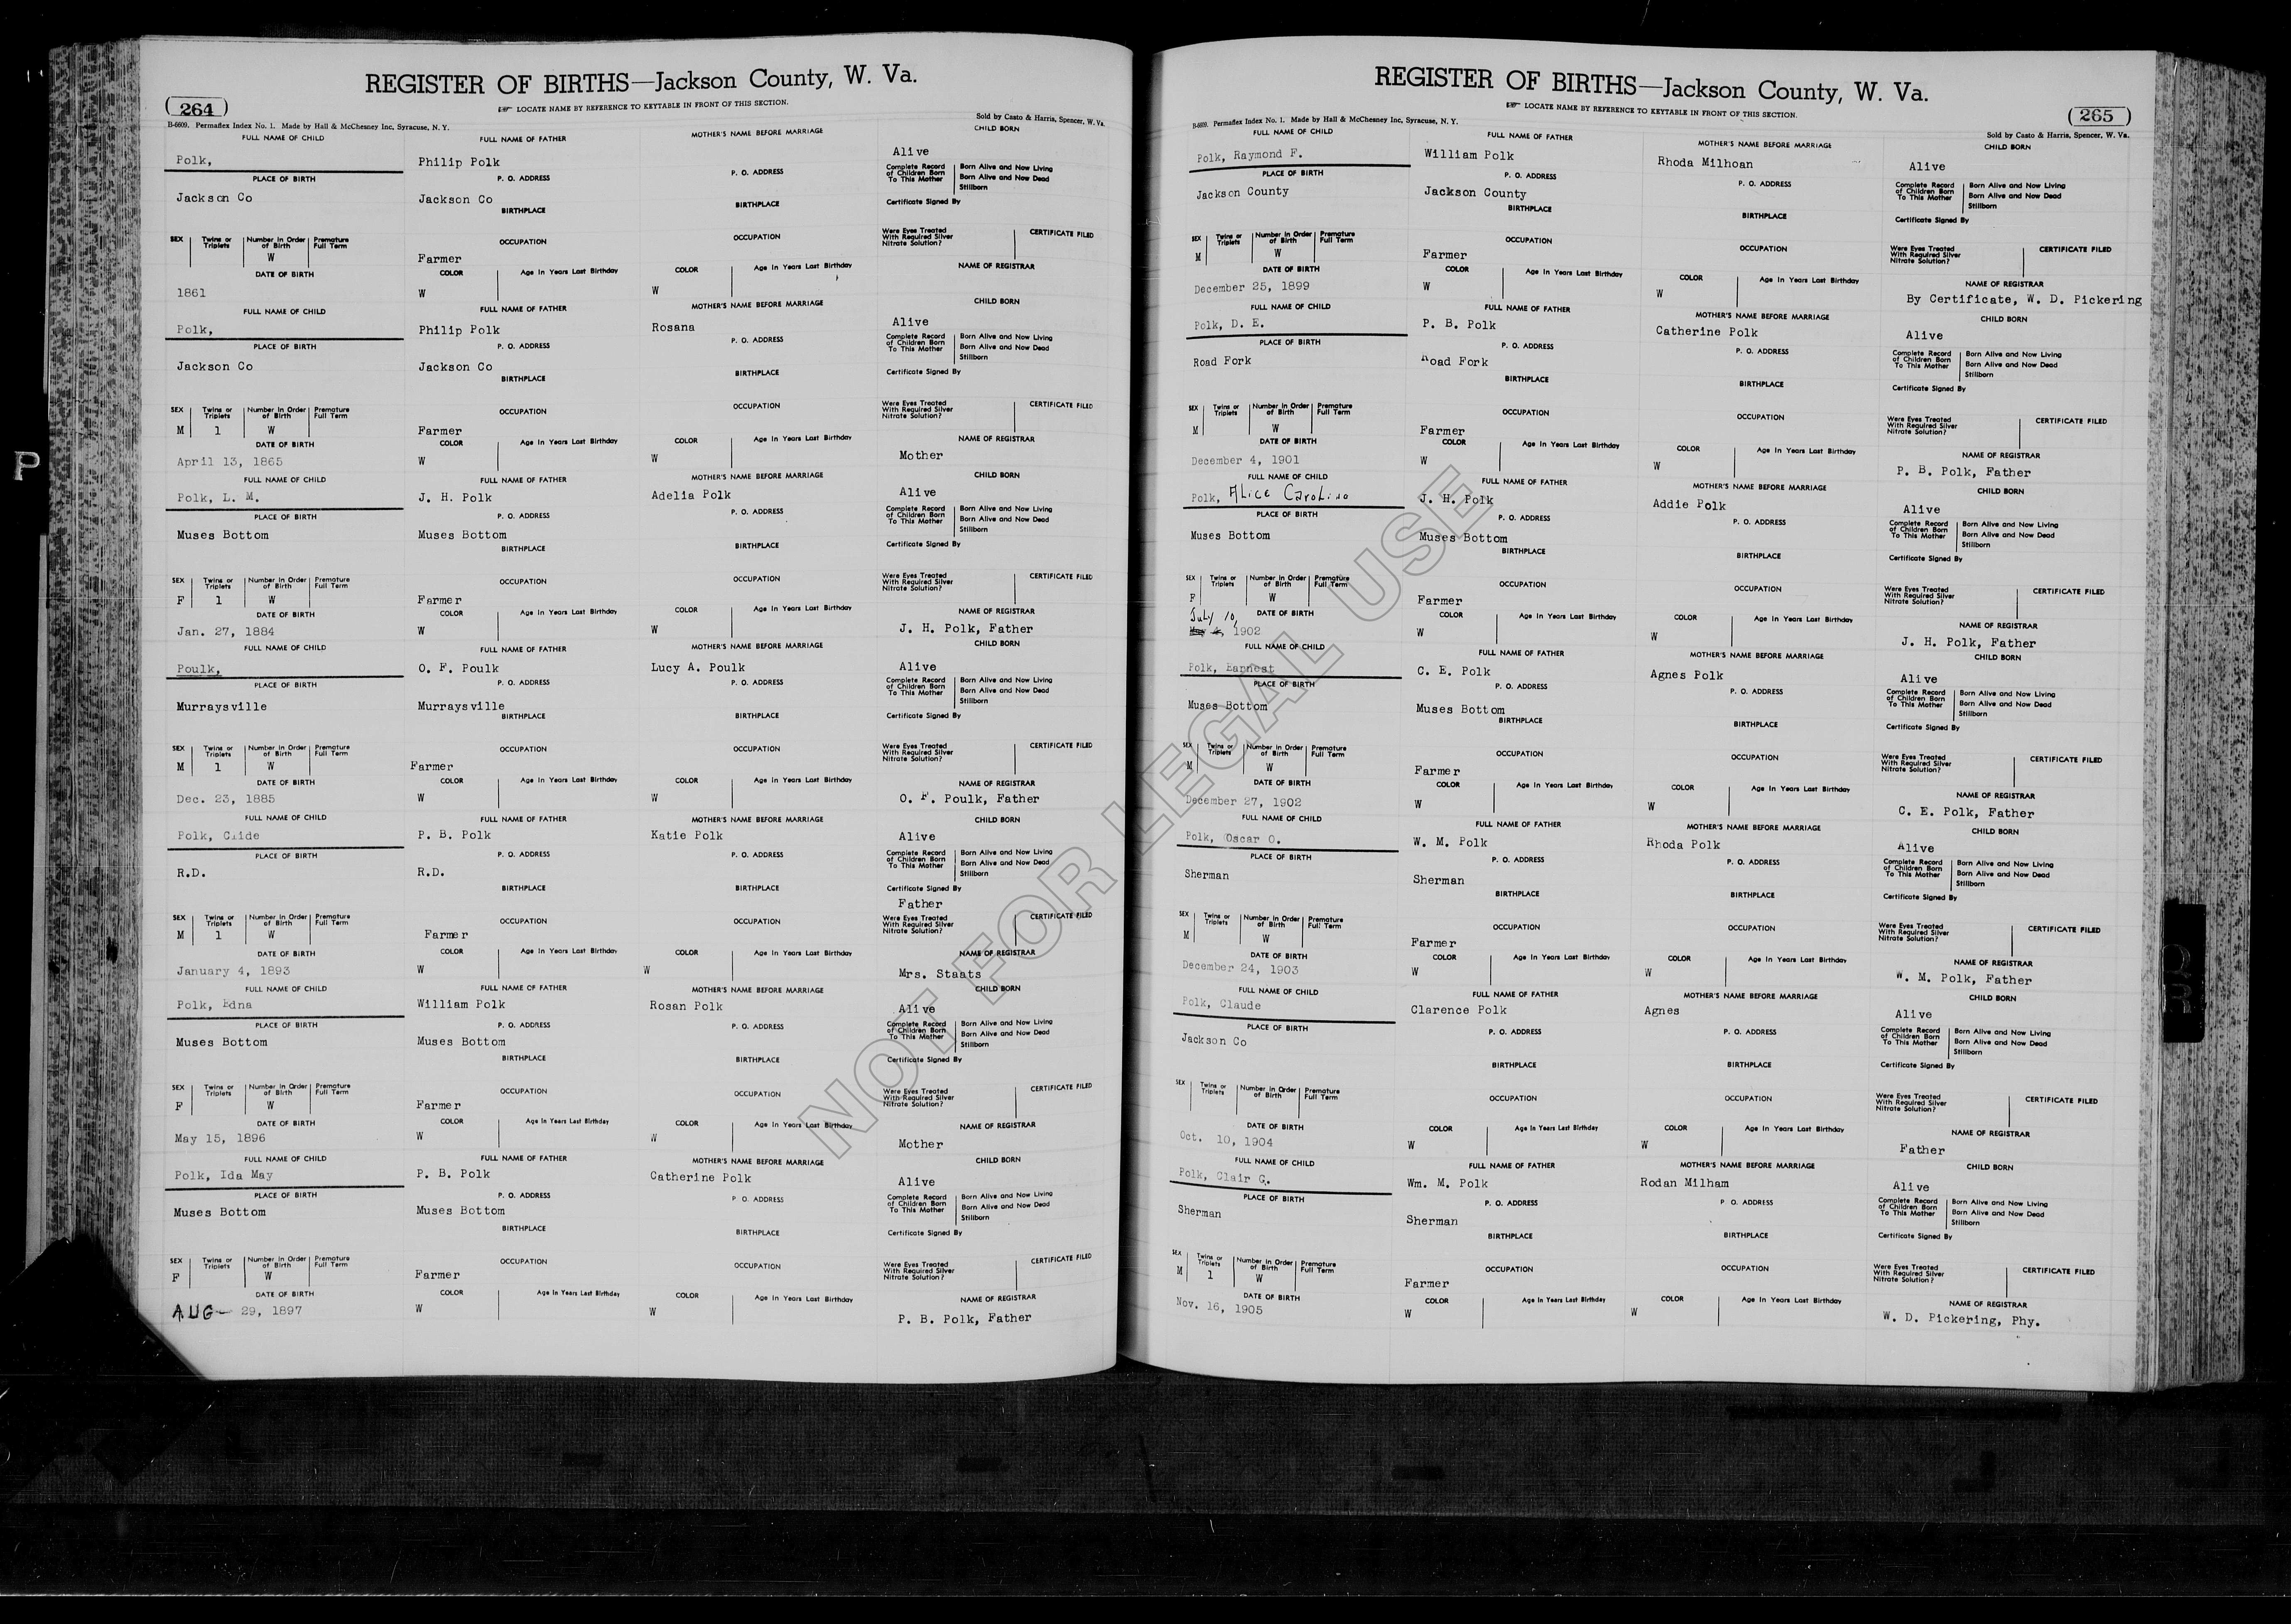 P
REGISTER OF BIRTHS—Jackson County, W. Va.
264
☞ LOCATE NAME BY REFERENCE TO KEYTABLE IN FRONT OF THIS SECTION.
B-6609. Permaflex Index No. 1. Made by Hall & McChesney Inc, Syracuse, N. Y. Sold by Casto & Harris, Spencer, W. Va.
FULL NAME OF CHILD FULL NAME OF FATHER MOTHER'S NAME BEFORE MARRIAGE CHILD BORN
Polk, Philip Polk Alive
PLACE OF BIRTH P. O. ADDRESS P. O. ADDRESS Complete Record of Children Born To This Mother Born Alive and Now Living Born Alive and Now Dead Stillborn
Jackson Co Jackson Co
BIRTHPLACE BIRTHPLACE Certificate Signed By
SEX Twins or Triplets Number in Order of Birth Premature Full Term OCCUPATION OCCUPATION Were Eyes Treated With Required Silver Nitrate Solution? CERTIFICATE FILED
W Farmer
DATE OF BIRTH COLOR Age In Years Last Birthday COLOR Age In Years Last Birthday NAME OF REGISTRAR
1861 W W
FULL NAME OF CHILD FULL NAME OF FATHER MOTHER'S NAME BEFORE MARRIAGE CHILD BORN
Polk, Philip Polk Rosana Alive
PLACE OF BIRTH P. O. ADDRESS P. O. ADDRESS Complete Record of Children Born To This Mother Born Alive and Now Living Born Alive and Now Dead Stillborn
Jackson Co Jackson Co
BIRTHPLACE BIRTHPLACE Certificate Signed By
SEX Twins or Triplets Number in Order of Birth Premature Full Term OCCUPATION OCCUPATION Were Eyes Treated With Required Silver Nitrate Solution? CERTIFICATE FILED
M 1 W Farmer
DATE OF BIRTH COLOR Age In Years Last Birthday COLOR Age In Years Last Birthday NAME OF REGISTRAR
April 13, 1865 W W Mother
FULL NAME OF CHILD FULL NAME OF FATHER MOTHER'S NAME BEFORE MARRIAGE CHILD BORN
Polk, L. M. J. H. Polk Adelia Polk Alive
PLACE OF BIRTH P. O. ADDRESS P. O. ADDRESS Complete Record of Children Born To This Mother Born Alive and Now Living Born Alive and Now Dead Stillborn
Muses Bottom Muses Bottom
BIRTHPLACE BIRTHPLACE Certificate Signed By
SEX Twins or Triplets Number in Order of Birth Premature Full Term OCCUPATION OCCUPATION Were Eyes Treated With Required Silver Nitrate Solution? CERTIFICATE FILED
F 1 W Farmer
DATE OF BIRTH COLOR Age In Years Last Birthday COLOR Age In Years Last Birthday NAME OF REGISTRAR
Jan. 27, 1884 W W J. H. Polk, Father
FULL NAME OF CHILD FULL NAME OF FATHER MOTHER'S NAME BEFORE MARRIAGE CHILD BORN
Poulk, O. F. Poulk Lucy A. Poulk Alive
PLACE OF BIRTH P. O. ADDRESS P. O. ADDRESS Complete Record of Children Born To This Mother Born Alive and Now Living Born Alive and Now Dead Stillborn
Murraysville Murraysville
BIRTHPLACE BIRTHPLACE Certificate Signed By
SEX Twins or Triplets Number in Order of Birth Premature Full Term OCCUPATION OCCUPATION Were Eyes Treated With Required Silver Nitrate Solution? CERTIFICATE FILED
M 1 W Farmer
DATE OF BIRTH COLOR Age In Years Last Birthday COLOR Age In Years Last Birthday NAME OF REGISTRAR
Dec. 23, 1885 W W O. F. Poulk, Father
FULL NAME OF CHILD FULL NAME OF FATHER MOTHER'S NAME BEFORE MARRIAGE CHILD BORN
Polk, Clide P. B. Polk Katie Polk Alive
PLACE OF BIRTH P. O. ADDRESS P. O. ADDRESS Complete Record of Children Born To This Mother Born Alive and Now Living Born Alive and Now Dead Stillborn
R.D. R.D.
BIRTHPLACE BIRTHPLACE Certificate Signed By
Father
SEX Twins or Triplets Number in Order of Birth Premature Full Term OCCUPATION OCCUPATION Were Eyes Treated With Required Silver Nitrate Solution? CERTIFICATE FILED
M 1 W Farmer
DATE OF BIRTH COLOR Age In Years Last Birthday COLOR Age In Years Last Birthday NAME OF REGISTRAR
January 4, 1893 W W Mrs. Staats
FULL NAME OF CHILD FULL NAME OF FATHER MOTHER'S NAME BEFORE MARRIAGE CHILD BORN
Polk, Edna William Polk Rosan Polk Alive
PLACE OF BIRTH P. O. ADDRESS P. O. ADDRESS Complete Record of Children Born To This Mother Born Alive and Now Living Born Alive and Now Dead Stillborn
Muses Bottom Muses Bottom
BIRTHPLACE BIRTHPLACE Certificate Signed By
SEX Twins or Triplets Number in Order of Birth Premature Full Term OCCUPATION OCCUPATION Were Eyes Treated With Required Silver Nitrate Solution? CERTIFICATE FILED
F W Farmer
DATE OF BIRTH COLOR Age In Years Last Birthday COLOR Age In Years Last Birthday NAME OF REGISTRAR
May 15, 1896 W W Mother
FULL NAME OF CHILD FULL NAME OF FATHER MOTHER'S NAME BEFORE MARRIAGE CHILD BORN
Polk, Ida May P. B. Polk Catherine Polk Alive
PLACE OF BIRTH P. O. ADDRESS P O. ADDRESS Complete Record of Children Born To This Mother Born Alive and Now Living Born Alive and Now Dead Stillborn
Muses Bottom Muses Bottom
BIRTHPLACE BIRTHPLACE Certificate Signed By
SEX Twins or Triplets Number in Order of Birth Premature Full Term OCCUPATION OCCUPATION Were Eyes Treated With Required Silver Nitrate Solution? CERTIFICATE FILED
F W Farmer
DATE OF BIRTH COLOR Age In Years Last Birthday COLOR Age In Years Last Birthday NAME OF REGISTRAR
AUG 29, 1897 W W P. B. Polk, Father
REGISTER OF BIRTHS—Jackson County, W. Va.
☞ LOCATE NAME BY REFERENCE TO KEYTABLE IN FRONT OF THIS SECTION.
265
B-6609. Permaflex Index No. 1. Made by Hall & McChesney Inc, Syracuse, N. Y. Sold by Casto & Harris, Spencer, W. Va.
FULL NAME OF CHILD FULL NAME OF FATHER MOTHER'S NAME BEFORE MARRIAGE CHILD BORN
Polk, Raymond F. William Polk Rhoda Milhoan Alive
PLACE OF BIRTH P. O. ADDRESS P. O. ADDRESS Complete Record of Children Born To This Mother Born Alive and Now Living Born Alive and Now Dead Stillborn
Jackson County Jackson County
BIRTHPLACE BIRTHPLACE Certificate Signed By
SEX Twins or Triplets Number in Order of Birth Premature Full Term OCCUPATION OCCUPATION Were Eyes Treated With Required Silver Nitrate Solution? CERTIFICATE FILED
M W Farmer
DATE OF BIRTH COLOR Age In Years Last Birthday COLOR Age In Years Last Birthday NAME OF REGISTRAR
December 25, 1899 W W By Certificate, W. D. Pickering
FULL NAME OF CHILD FULL NAME OF FATHER MOTHER'S NAME BEFORE MARRIAGE CHILD BORN
Polk, D. E. P. B. Polk Catherine Polk Alive
PLACE OF BIRTH P. O. ADDRESS P. O. ADDRESS Complete Record of Children Born To This Mother Born Alive and Now Living Born Alive and Now Dead Stillborn
Road Fork Road Fork
BIRTHPLACE BIRTHPLACE Certificate Signed By
SEX Twins or Triplets Number in Order of Birth Premature Full Term OCCUPATION OCCUPATION Were Eyes Treated With Required Silver Nitrate Solution? CERTIFICATE FILED
M W Farmer
DATE OF BIRTH COLOR Age In Years Last Birthday COLOR Age In Years Last Birthday NAME OF REGISTRAR
December 4, 1901 W W P. B. Polk, Father
FULL NAME OF CHILD FULL NAME OF FATHER MOTHER'S NAME BEFORE MARRIAGE CHILD BORN
Polk, Alice Caroline J. H. Polk Addie Polk Alive
PLACE OF BIRTH P. O. ADDRESS P. O. ADDRESS Complete Record of Children Born To This Mother Born Alive and Now Living Born Alive and Now Dead Stillborn
Muses Bottom Muses Bottom
BIRTHPLACE BIRTHPLACE Certificate Signed By
SEX Twins or Triplets Number in Order of Birth Premature Full Term OCCUPATION OCCUPATION Were Eyes Treated With Required Silver Nitrate Solution? CERTIFICATE FILED
F W Farmer
July 10, DATE OF BIRTH COLOR Age In Years Last Birthday COLOR Age In Years Last Birthday NAME OF REGISTRAR
1902 W W J. H. Polk, Father
FULL NAME OF CHILD FULL NAME OF FATHER MOTHER'S NAME BEFORE MARRIAGE CHILD BORN
Polk, Earnest C. E. Polk Agnes Polk Alive
PLACE OF BIRTH P. O. ADDRESS P. O. ADDRESS Complete Record of Children Born To This Mother Born Alive and Now Living Born Alive and Now Dead Stillborn
Muses Bottom Muses Bottom
BIRTHPLACE BIRTHPLACE Certificate Signed By
SEX Twins or Triplets Number in Order of Birth Premature Full Term OCCUPATION OCCUPATION Were Eyes Treated With Required Silver Nitrate Solution? CERTIFICATE FILED
M W Farmer
DATE OF BIRTH COLOR Age In Years Last Birthday COLOR Age In Years Last Birthday NAME OF REGISTRAR
December 27, 1902 W W C. E. Polk, Father
FULL NAME OF CHILD FULL NAME OF FATHER MOTHER'S NAME BEFORE MARRIAGE CHILD BORN
Polk, Oscar O. W. M. Polk Rhoda Polk Alive
PLACE OF BIRTH P. O. ADDRESS P. O. ADDRESS Complete Record of Children Born To This Mother Born Alive and Now Living Born Alive and Now Dead Stillborn
Sherman Sherman
BIRTHPLACE BIRTHPLACE Certificate Signed By
SEX Twins or Triplets Number in Order of Birth Premature Full Term OCCUPATION OCCUPATION Were Eyes Treated With Required Silver Nitrate Solution? CERTIFICATE FILED
M W Farmer
DATE OF BIRTH COLOR Age In Years Last Birthday COLOR Age In Years Last Birthday NAME OF REGISTRAR
December 24, 1903 W W W. M. Polk, Father
FULL NAME OF CHILD FULL NAME OF FATHER MOTHER'S NAME BEFORE MARRIAGE CHILD BORN
Polk, Claude Clarence Polk Agnes Alive
PLACE OF BIRTH P. O. ADDRESS P. O. ADDRESS Complete Record of Children Born To This Mother Born Alive and Now Living Born Alive and Now Dead Stillborn
Jackson Co
BIRTHPLACE BIRTHPLACE Certificate Signed By
SEX Twins or Triplets Number in Order of Birth Premature Full Term OCCUPATION OCCUPATION Were Eyes Treated With Required Silver Nitrate Solution? CERTIFICATE FILED
DATE OF BIRTH COLOR Age In Years Last Birthday COLOR Age In Years Last Birthday NAME OF REGISTRAR
Oct. 10, 1904 W W Father
FULL NAME OF CHILD FULL NAME OF FATHER MOTHER'S NAME BEFORE MARRIAGE CHILD BORN
Polk, Clair G. Wm. M. Polk Rodan Milham Alive
PLACE OF BIRTH P. O. ADDRESS P O. ADDRESS Complete Record of Children Born To This Mother Born Alive and Now Living Born Alive and Now Dead Stillborn
Sherman Sherman
BIRTHPLACE BIRTHPLACE Certificate Signed By
SEX Twins or Triplets Number in Order of Birth Premature Full Term OCCUPATION OCCUPATION Were Eyes Treated With Required Silver Nitrate Solution? CERTIFICATE FILED
M 1 W Farmer
DATE OF BIRTH COLOR Age In Years Last Birthday COLOR Age In Years Last Birthday NAME OF REGISTRAR
Nov. 16, 1905 W W W. D. Pickering, Phy.
NOT FOR LEGAL USE